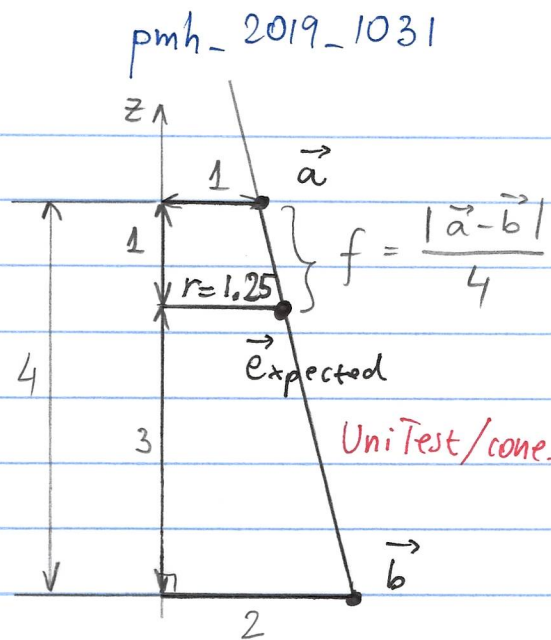 pmh_2019_1031
z
1
a
1
f = |a-b| / 4
r=1.25
expected
4
3
UniTest/cone.
b
2